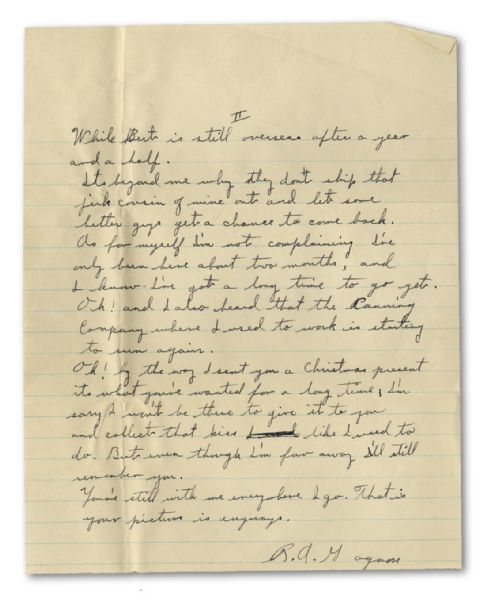 II
While Bert is still overseas after a year
and a half.
Its beyond me why they don't ship that
jerk cousin of mine out and let some
better guys get a chance to come back.
As for myself I'm not complaining I've
only been here about two months, and
I know I've got a long time to go yet.
Oh! and I also heard that the Canning
Company where I used to work is starting
to run again.
Oh! by the way I sent you a Christmas present
its what you've wanted for a long time, I'm
sorry I won't be there to give it to you
and collect that kiss like I used to
do. But even though I'm far away I'll still
remember you.
Your's still with me everywhere I go. That is
your picture is anyways.
R.A. Gagnon